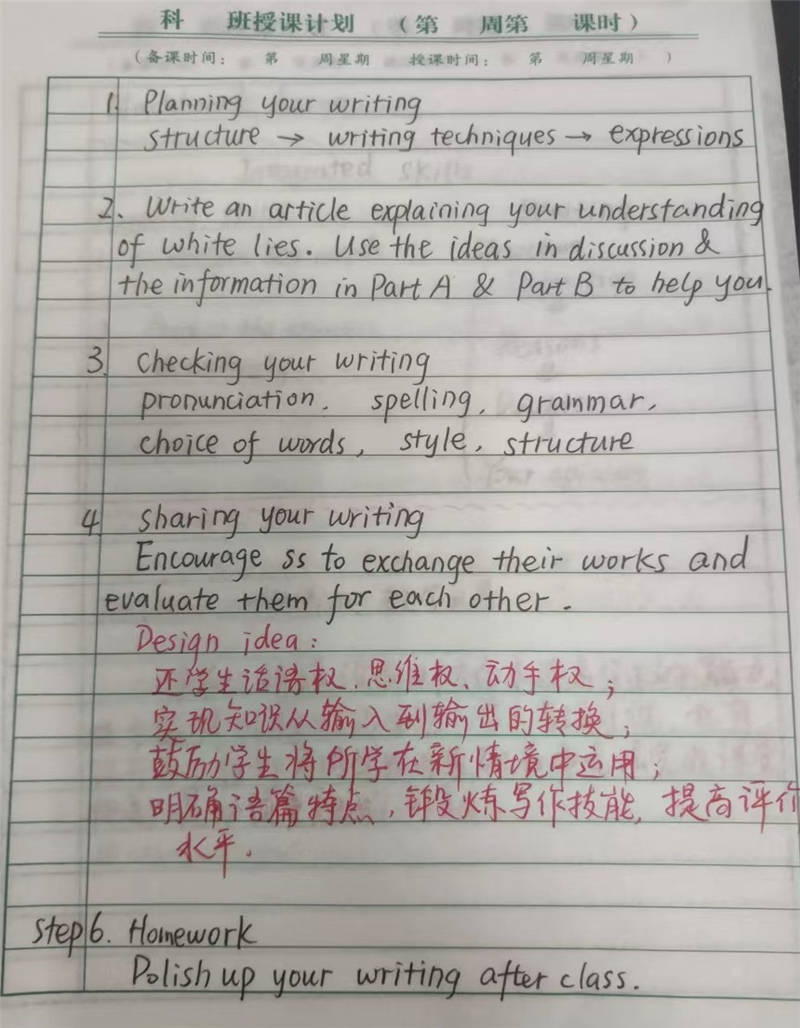 科 班授课计划 （第 周第 课时）
（备课时间： 第 周星期 授课时间： 第 周星期 ）
1. Planning your writing
structure → writing techniques → expressions
2. Write an article explaining your understanding
of white lies. Use the ideas in discussion &
the information in Part A & Part B to help you.
3. Checking your writing
pronunciation, spelling, grammar,
choice of words, style, structure
4 sharing your writing
Encourage ss to exchange their works and
evaluate them for each other.
Design idea:
还学生话语权、思维权、动手权；
实现知识从输入到输出的转换；
鼓励学生将所学在新情境中运用；
明确语篇特点，锻炼写作技能，提高评价
水平.
Step 6. Homework
Polish up your writing after class.